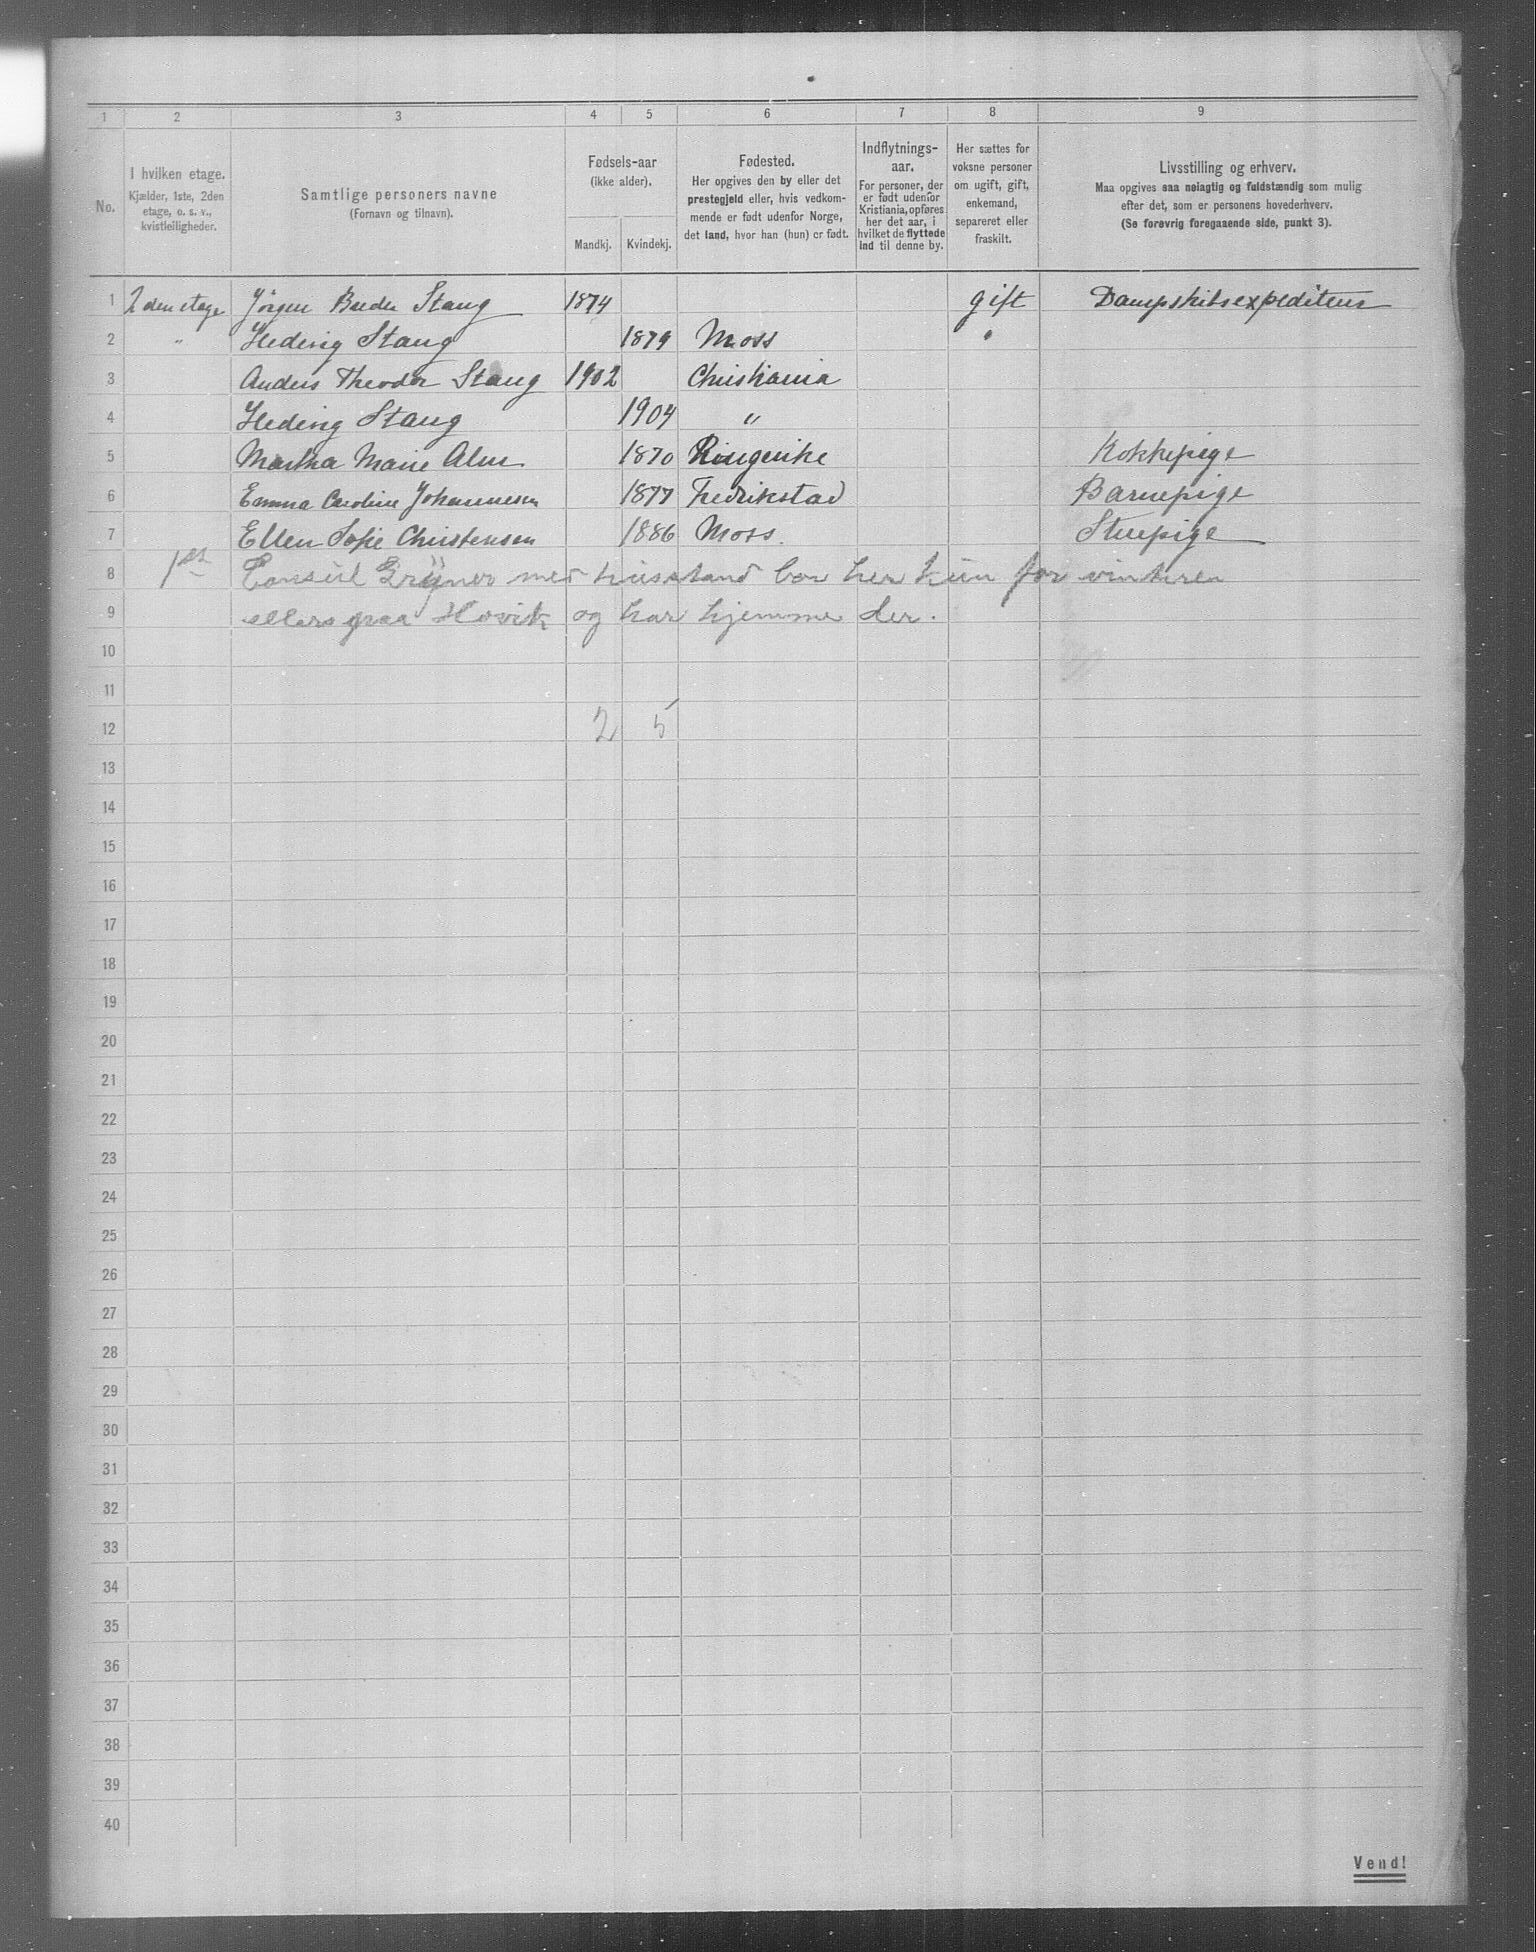 1 2 3 4 5 6 7 8 9
No.
I hvilken etage.
Kjælder, 1ste, 2den
etage, o. s. v.,
kvistleiligheder.
Samtlige personers navne
(Fornavn og tilnavn).
Fødsels-aar
(ikke alder).
Mandkj. Kvindekj.
Fødested.
Her opgives den by eller det
prestegjeld eller, hvis vedkom-
mende er født udenfor Norge,
det land, hvor han (hun) er født.
Indflytnings-
aar.
For personer, der
er født udenfor
Kristiania, opføres
her det aar, i
hvilket de flyttede
ind til denne by.
Her sættes for
voksne personer
om ugift, gift,
enkemand,
separeret eller
fraskilt.
Livsstilling og erhverv.
Maa opgives saa nøiagtig og fuldstændig som mulig
efter det, som er personens hovederhverv.
(Se forøvrig foregaaende side, punkt 3).
1 2den etage Jörgen Stang 1874 gift Dampskibsexpediteur
2 " Hedevig Stang 1879 Moss "
3 Anders Theodor Stang 1902 Christiania
4 Hedevig Stang 1904 "
5 Martha Marie Alm 1870 Ringerike Kokkepige
6 Emma Caroline Johannesen 1877 Fredrikstad Barnepige
7 Ellen Sofie Christensen 1886 Moss. Stuepige
8 1st Consül Grüner med hüsstand bor her kün for vinteren
9 ellers paa Hovik og har hjemme der.
10
11
12 2 5
13
14
15
16
17
18
19
20
21
22
23
24
25
26
27
28
29
30
31
32
33
34
35
36
37
38
39
40
Vend!